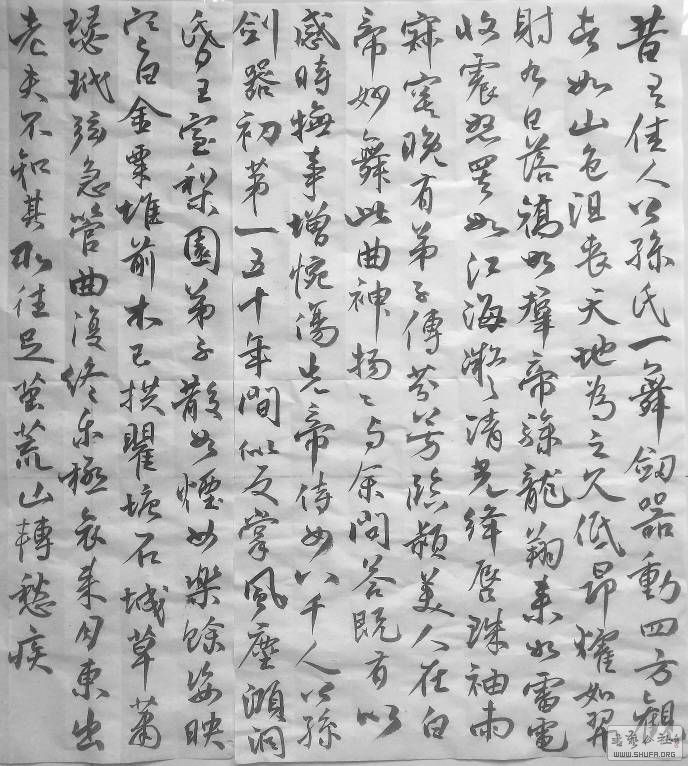 昔有佳人公孫氏一舞劍器動四方觀
者如山色沮喪天地為之久低昂耀如羿
射九日落矯如羣帝驂龍翔來如雷電
收震怒罷如江海凝清光絳唇珠袖兩
寂寞晚有弟子傳芬芳臨潁美人在白
帝妙舞此曲神揚々与余問答既有以
感時撫事增惋傷先帝侍女八千人公孫
劍器初第一五十年間似反掌風塵澒洞
昏王室梨園弟子散如煙女樂餘姿映
寒日金粟堆前木已拱瞿塘石城草蕭
瑟玳弦急管曲復終樂極哀來月東出
老夫不知其所往足繭荒山轉愁疾
WWW.SHUFA.ORG